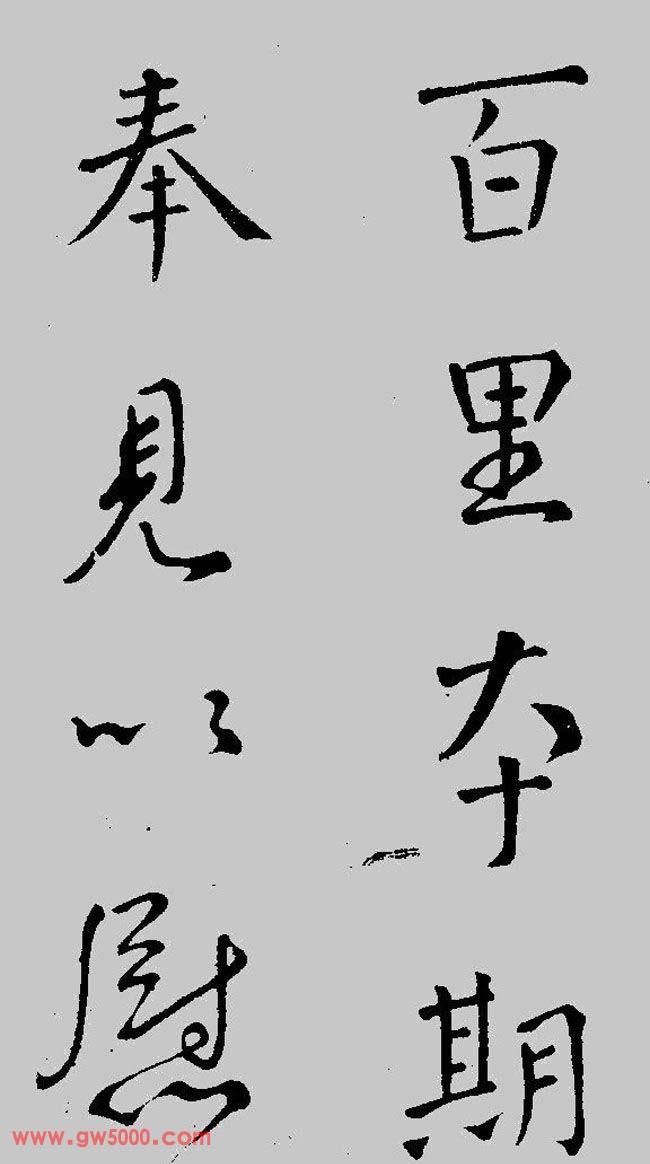 百里本期
奉見以慰
www.gw5000.com